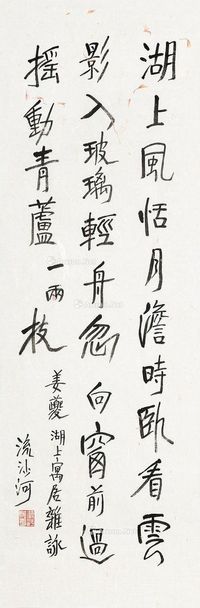 湖上風恬月澹時卧看雲
影入玻璃輕舟忽向窗前過
摇動青蘆一兩枝
姜夔湖上寓居雜詠
流沙河